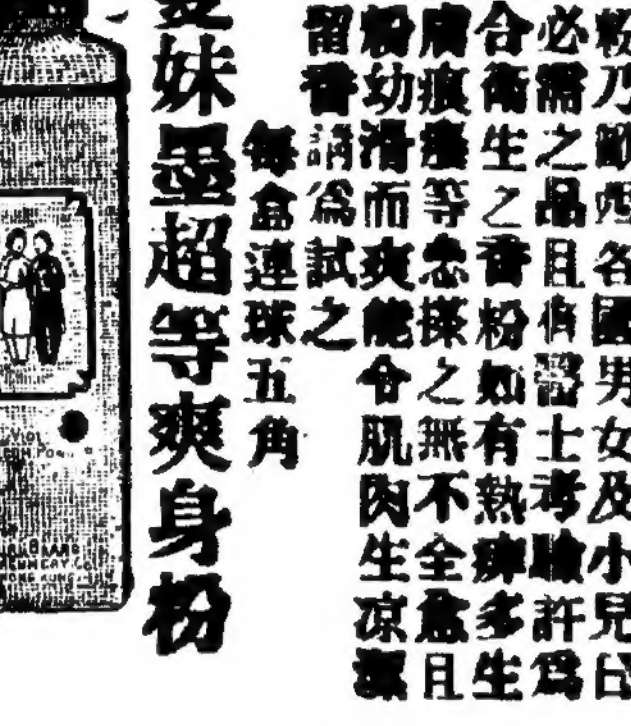 粉乃歐西各國男女及小兒日
必需之品且俱醫士考驗許爲
合衛生之香粉如有熱痱多生
膚痕癢等患搽之無不全愈且
粉幼滑而爽能令肌肉生凉
留香請爲試之
每盒連球五角
妹墨超等爽身粉
VIOL
HONG KONG